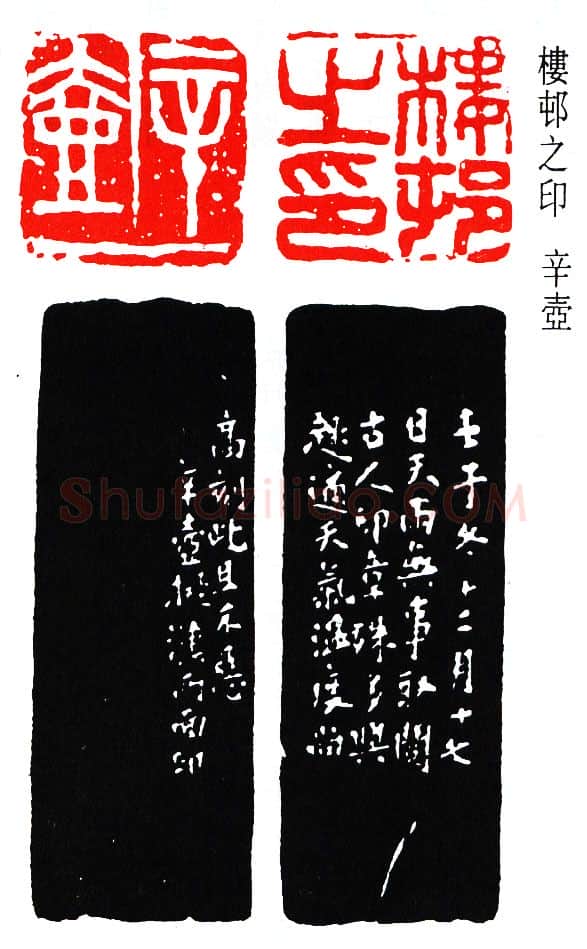 樓邨之印　辛壺
樓邨
之印
辛
壺
壬子冬十二月十七
日天雨無事取閱
古人印章殊多興
趣適天氣溫度尚
高刻此且不惡
辛壺擬漢兩面印
Shufaziliao.COM